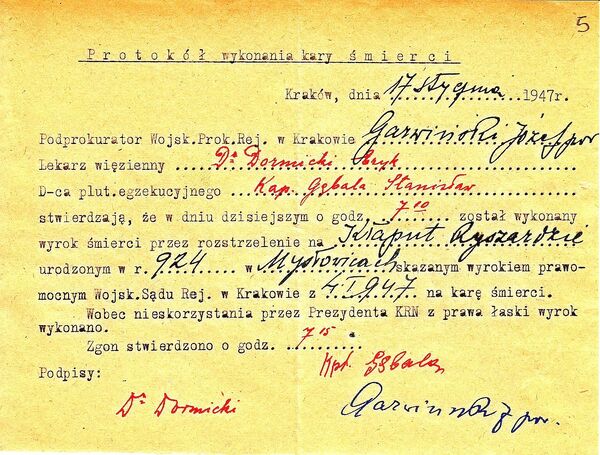 5
Protokół wykonania kary śmierci
Kraków, dnia 17 stycznia 1947r.
Podprokurator Wojsk.Prok.Rej. w Krakowie Garwiński Józef por
Lekarz więzienny Dr Dormicki
D-ca plut.egzekucyjnego Kap. Gębala Stanisław
stwierdzają, że w dniu dzisiejszym o godz, 7 10 został wykonany
wyrok śmierci przez rozstrzelenie na Kłaput Ryszardzie
urodzonym w r. 924 w Mysłowicach skazanym wyrokiem prawo-
mocnym Wojsk.Sądu Rej. w Krakowie z 4.I.947 na karę śmierci.
Wobec nieskorzystania przez Prezydenta KRN z prawa łaski wyrok
wykonano.
Zgon stwierdzono o godz. 7 15
Podpisy:
Kpt. Gębala
Dr Dormicki
Garwiński J por.